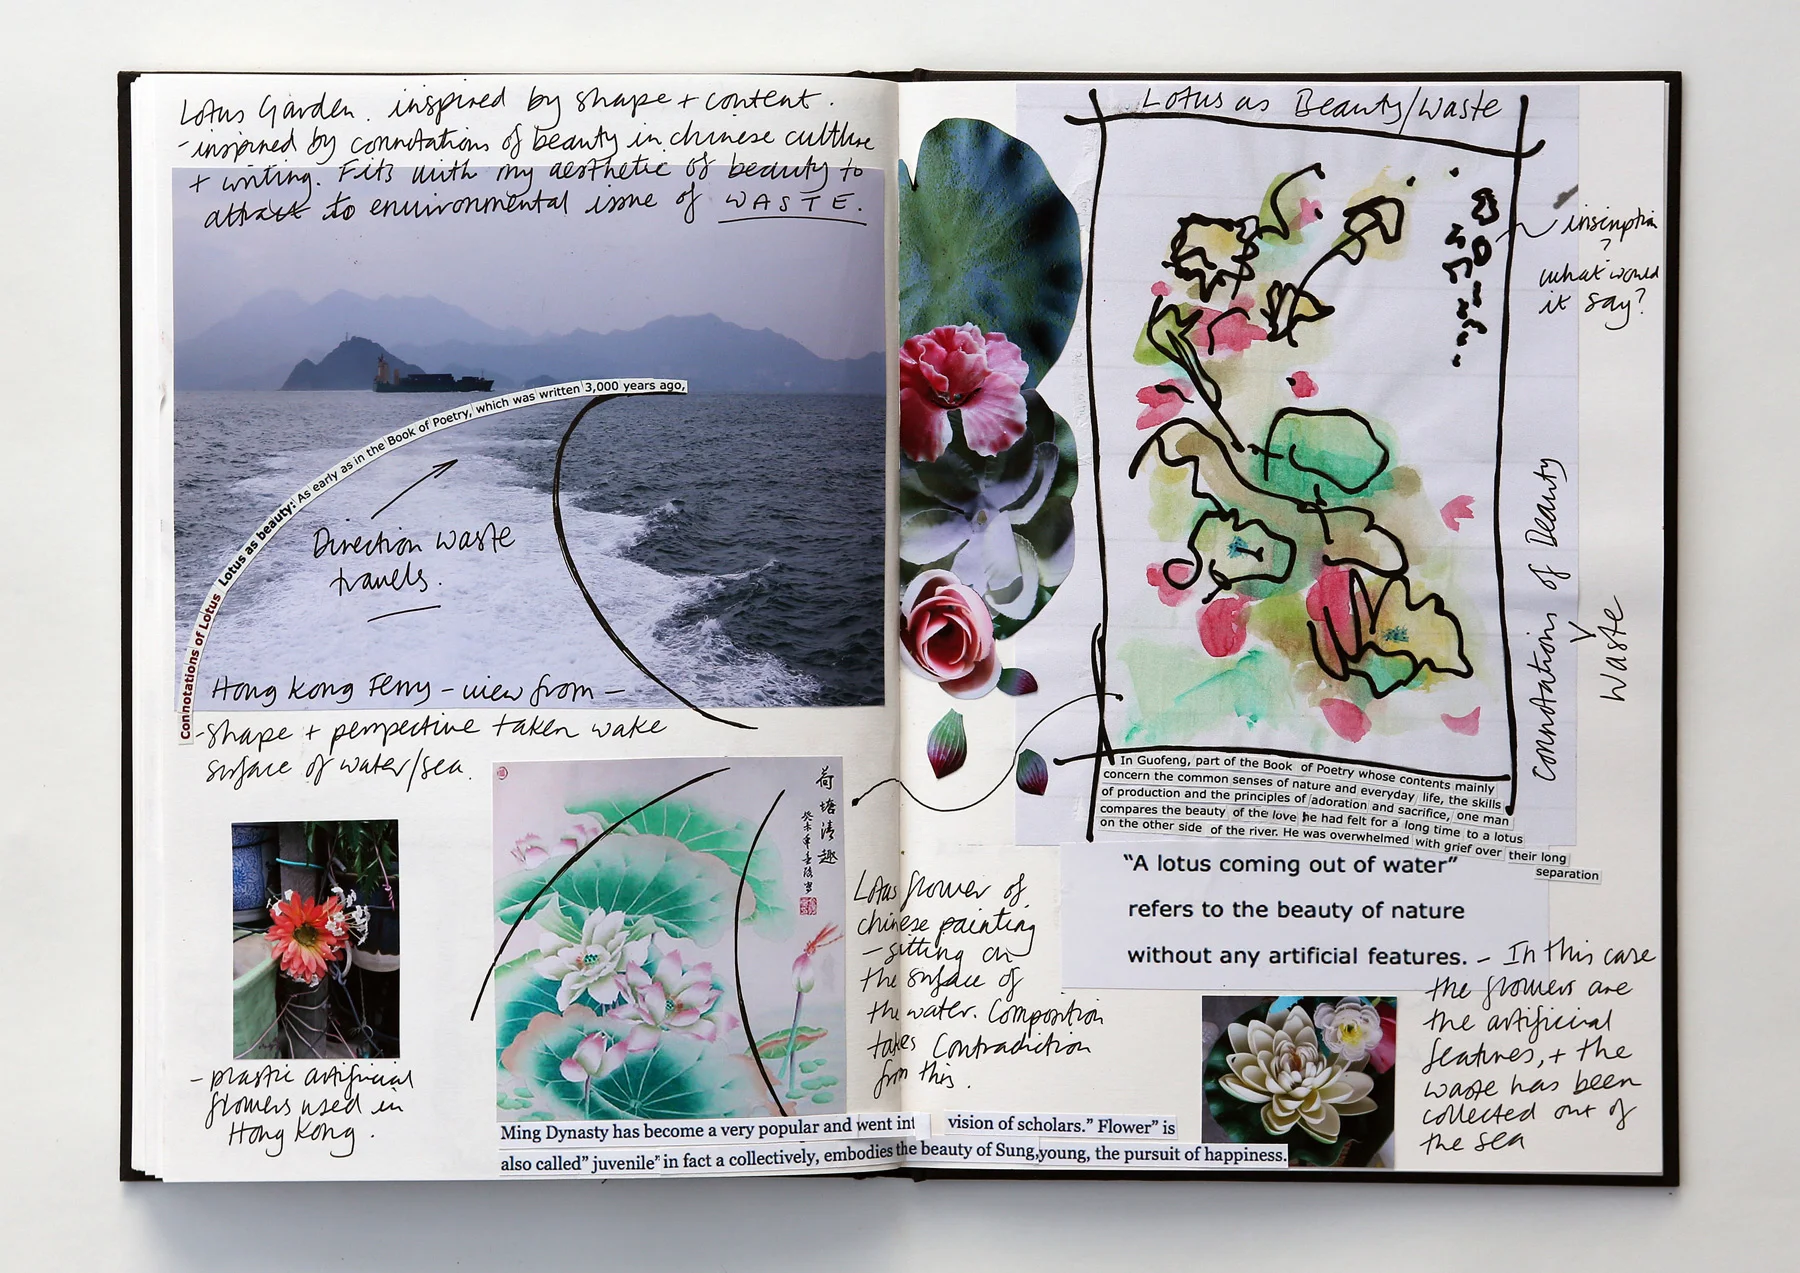 Lotus Garden. inspired by shape + content.
- inspired by connotations of beauty in chinese culture
+ writing. Fits with my aesthetic of beauty to
attract to environmental issue of WASTE.
Connotations of Lotus Lotus as beauty: As early as in the Book of Poetry, which was written 3,000 years ago,
Direction waste
travels.
Hong Kong Ferry - view from -
- shape + perspective taken wake
surface of water/sea.
- plastic artificial
flowers used in
Hong Kong.
荷塘清趣
Lotus flower of
chinese painting
- sitting on
the surface of
the water. Composition
takes contradiction
from this.
Ming Dynasty has become a very popular and went int vision of scholars.” Flower” is
also called” juvenile” in fact a collectively, embodies the beauty of Sung,young, the pursuit of happiness.
Lotus as Beauty/Waste
inscription
?
what would
it say?
connotations of Beauty
V
Waste
In Guofeng, part of the Book of Poetry whose contents mainly
concern the common senses of nature and everyday life, the skills
of production and the principles of adoration and sacrifice, one man
compares the beauty of the love he had felt for a long time to a lotus
on the other side of the river. He was overwhelmed with grief over their long
separation
“A lotus coming out of water”
refers to the beauty of nature
without any artificial features.
- In this case
the flowers are
the artificial
features, + the
waste has been
collected out of
the sea